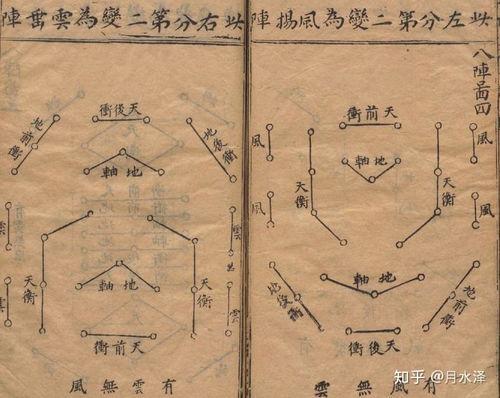 此左分第二變為風揚陣
八陣啚四
天前衝
風
風
地軸
天衡
天衡
風
風
地軸
地前衝
地後衝
天後衝
有風無雲
此右分第二變為雲垂陣
天後衝
地後衝
地前衝
地軸
雲
雲
天衡
天衡
地軸
雲
天前衝
有雲無風
知乎 @月水泽